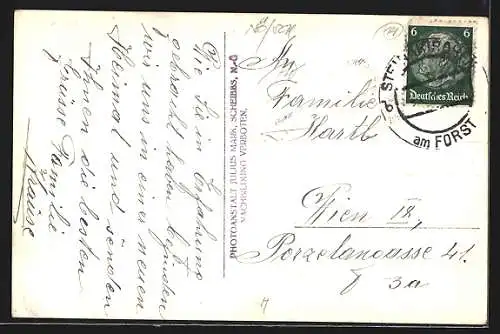 Wie Sie in Erfahrung
gebracht haben befinden
wir uns in einer neuen
Heimat und senden
Ihnen die besten
Grüsse Familie
Krause
PHOTOANSTALT JULIUS MARK, SCHEIBBS, N.-Ö
NACHBILDUNG VERBOTEN.
An
Familie
Hartl
Wien IX,
Porzelangasse 41.
3a
6 6
Deutsches Reich
am FORST